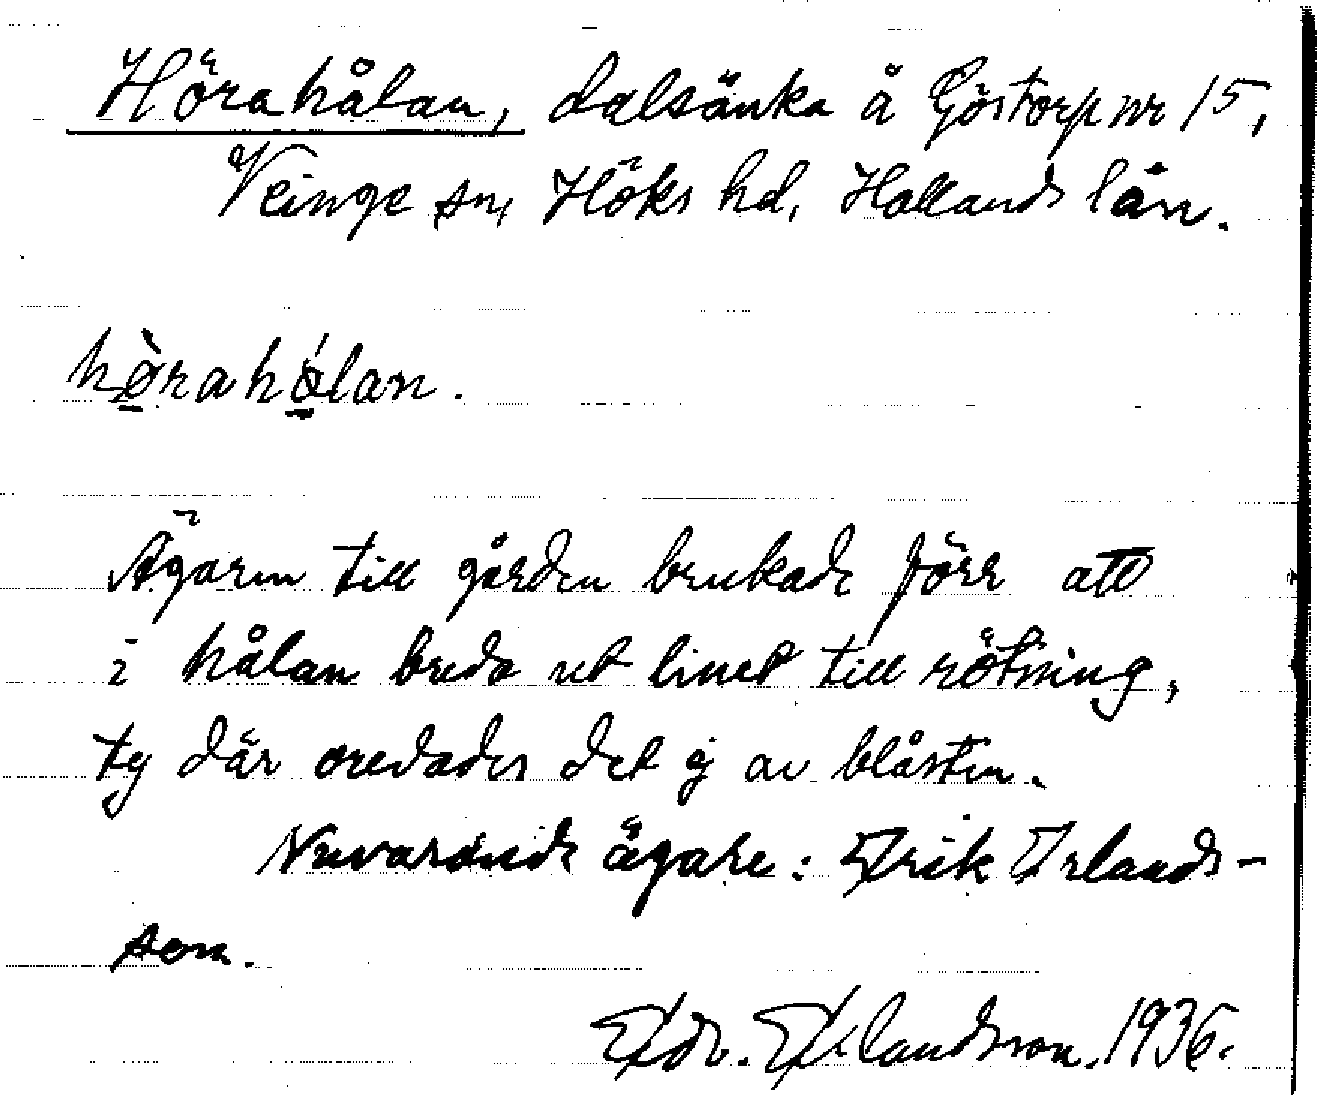 Hörahålan, dalsänka å Göstorp nr 15,
Veinge sn, Höks hd, Hallands län.
hø̀rahǿlan.
Ägaren till gården brukade förr att
i hålan breda ut linet till rötning,
ty där oredades det ej av blåsten.
Nuvarande ägare: Erik Erlands-
son.
Edv. Erlandsson. 1936.